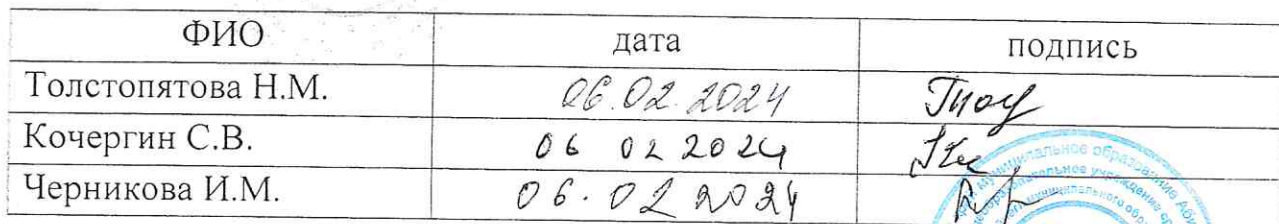 ФИО дата подпись
Толстопятова Н.М. 06.02.2024
Кочергин С.В. 06 02 2024
Черникова И.М. 06.02 2024
муниципальное образование